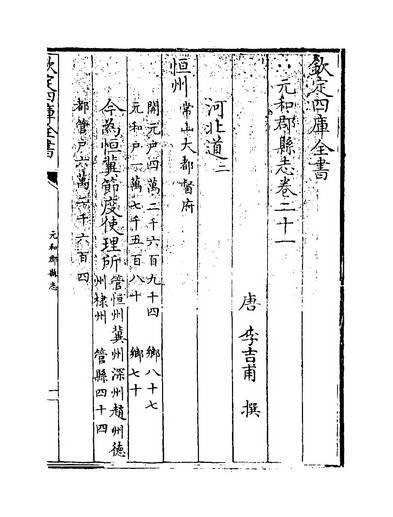 欽定四庫全書
元和郡縣志卷二十一
唐 李吉甫 撰
河北道二
恒州 常山大都督府
開元戶四萬二千六百九十四 鄉八十七
元和戶一萬七千五百八十 鄉七十
今為恒冀節度使理所 管恒州冀州深州趙州德
州棣州 管縣四十四
都管戶六萬三千六百四
欽定四庫全書
元和郡縣志
一